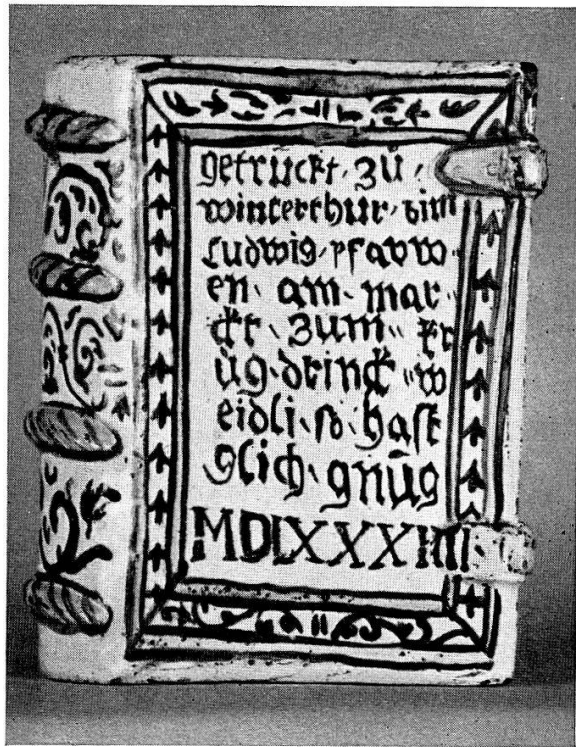 getrückt · zů ·
winterthur · bim
Ludwig · pfavw
en · am · mar ·
ckt · zum · kr
ůg · drinck · w
eidli · so · hast
glich · gnůg
MDLXXXIIII